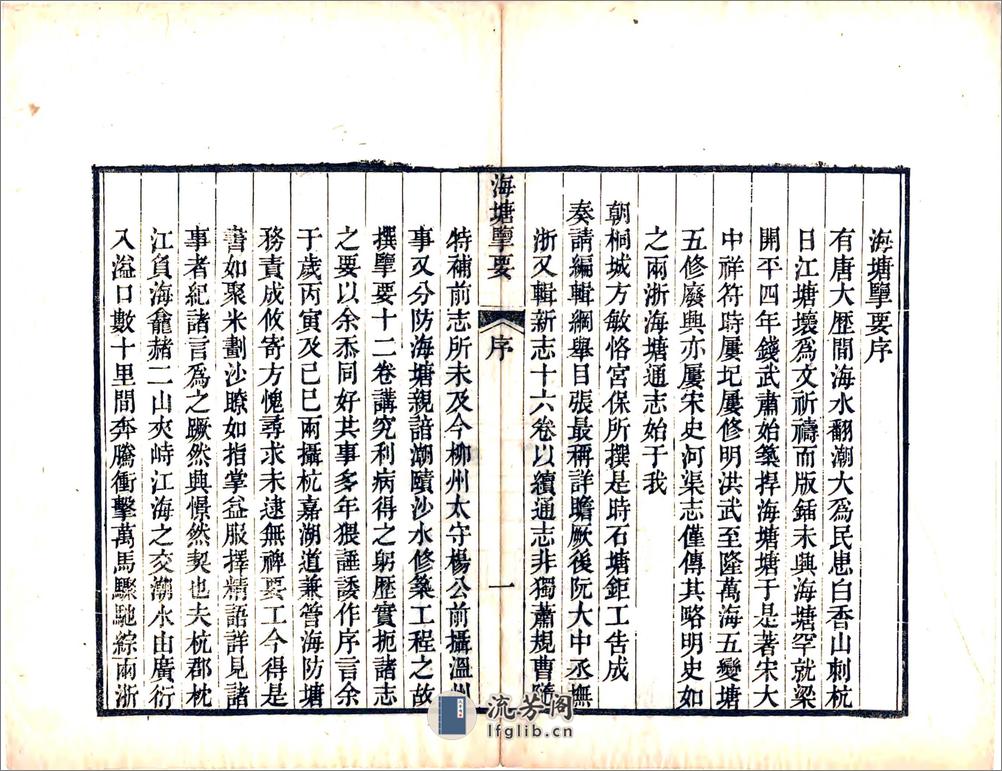 海塘擥要序
有唐大歷間海水翻潮大爲民患白香山刺杭
日江塘壞爲文祈禱而版鍤未興海塘罕就梁
開平四年錢武肅始築捍海塘塘于是著宋大
中祥符時屢圮屢修明洪武至隆萬海五變塘
五修廢興亦屢宋史河渠志僅傳其略明史如
之兩浙海塘通志始于我
朝桐城方敏恪宮保所撰是時石塘鉅工告成
奏請編輯綱舉目張最稱詳贍厥後阮大中丞撫
浙又輯新志十六卷以續通志非獨蕭規曹隨
海塘擥要
序
一
特補前志所未及今柳州太守楊公前攝溫州
事又分防海塘親諳潮賾沙水修築工程之故
撰擥要十二卷講究利病得之躬歷實扼諸志
之要以余忝同好其事多年猥諈諉作序言余
于歲丙寅及己巳兩攝杭嘉湖道兼管海防塘
務責成攸寄方愧尋求未逮無裨要工今得是
書如聚米劃沙瞭如指掌益服擇精語詳見諸
事者紀諸言爲之蹶然興憬然契也夫杭郡枕
江負海龕赭二山夾峙江海之交潮水由廣衍
入溢口數十里間奔騰衝擊萬馬驟馳綜兩浙
流芳阁
lfglib.cn